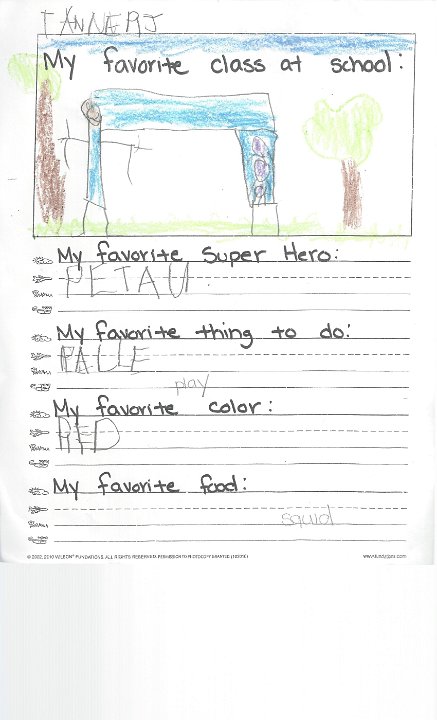 TANNERJ
My favorite class at school:
My favorite Super Hero:
PETAUI
My favorite thing to do:
PALLE
play
My favorite color:
RED
My favorite food:
squid
© 2002, 2010 WILSON FUNDATIONS. ALL RIGHTS RESERVED. PERMISSION TO PHOTOCOPY GRANTED.